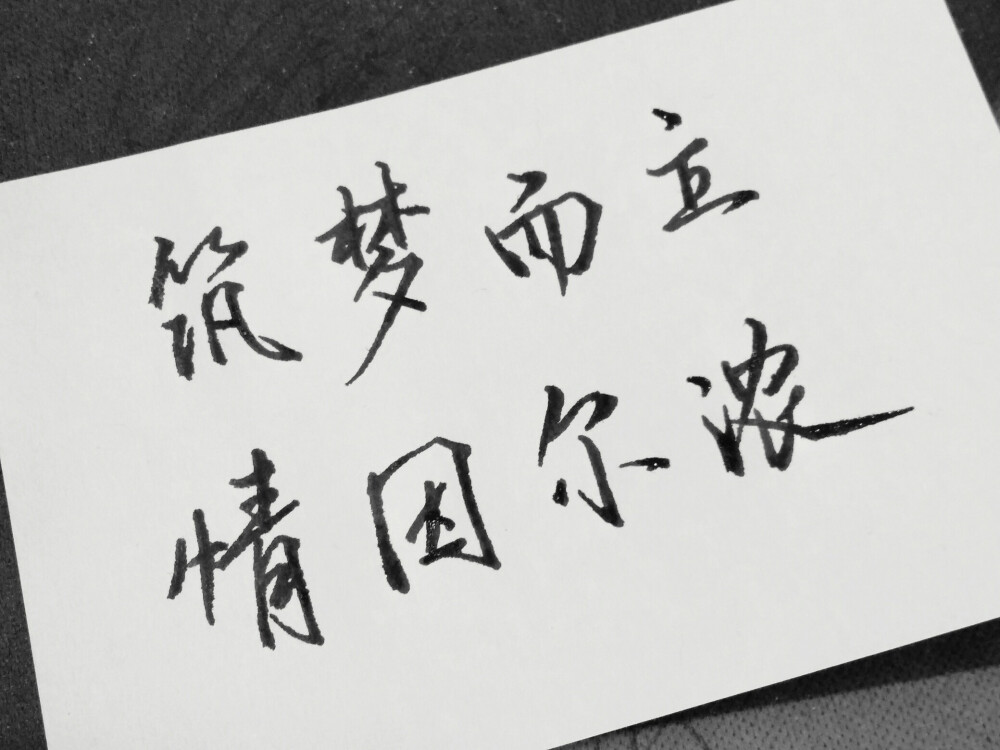 筑梦而立
情因尔浓